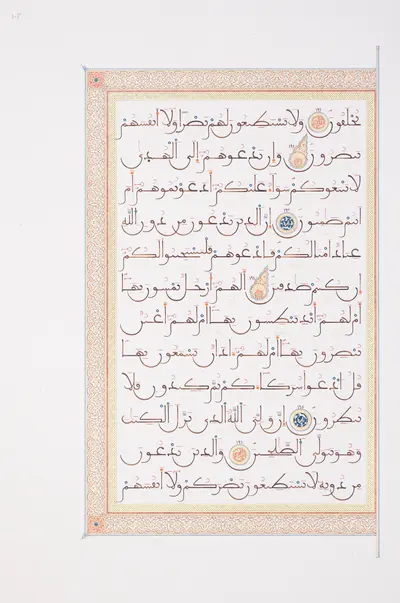 يخلقون ولا يستطيعون لهم نصرا ولا أنفسهم
ينصرون وإن تدعوهم إلى الهدى
لا يتبعوكم سواء عليكم أدعوتموهم أم
أنتم صمتون إن الذين تدعون من دون الله
عباد أمثالكم فادعوهم فليستجيبوا لكم
إن كنتم صدقين ألهم أرجل يمشون بها
أم لهم أيد يبطشون بها أم لهم أعين
يبصرون بها أم لهم ءاذان يسمعون بها
قل ادعوا شركاءكم ثم كيدون فلا
تنظرون إن وليي الله الذي نزل الكتب
وهو يتولى الصلحين والذين تدعون
من دونه لا يستطيعون نصركم ولا أنفسهم